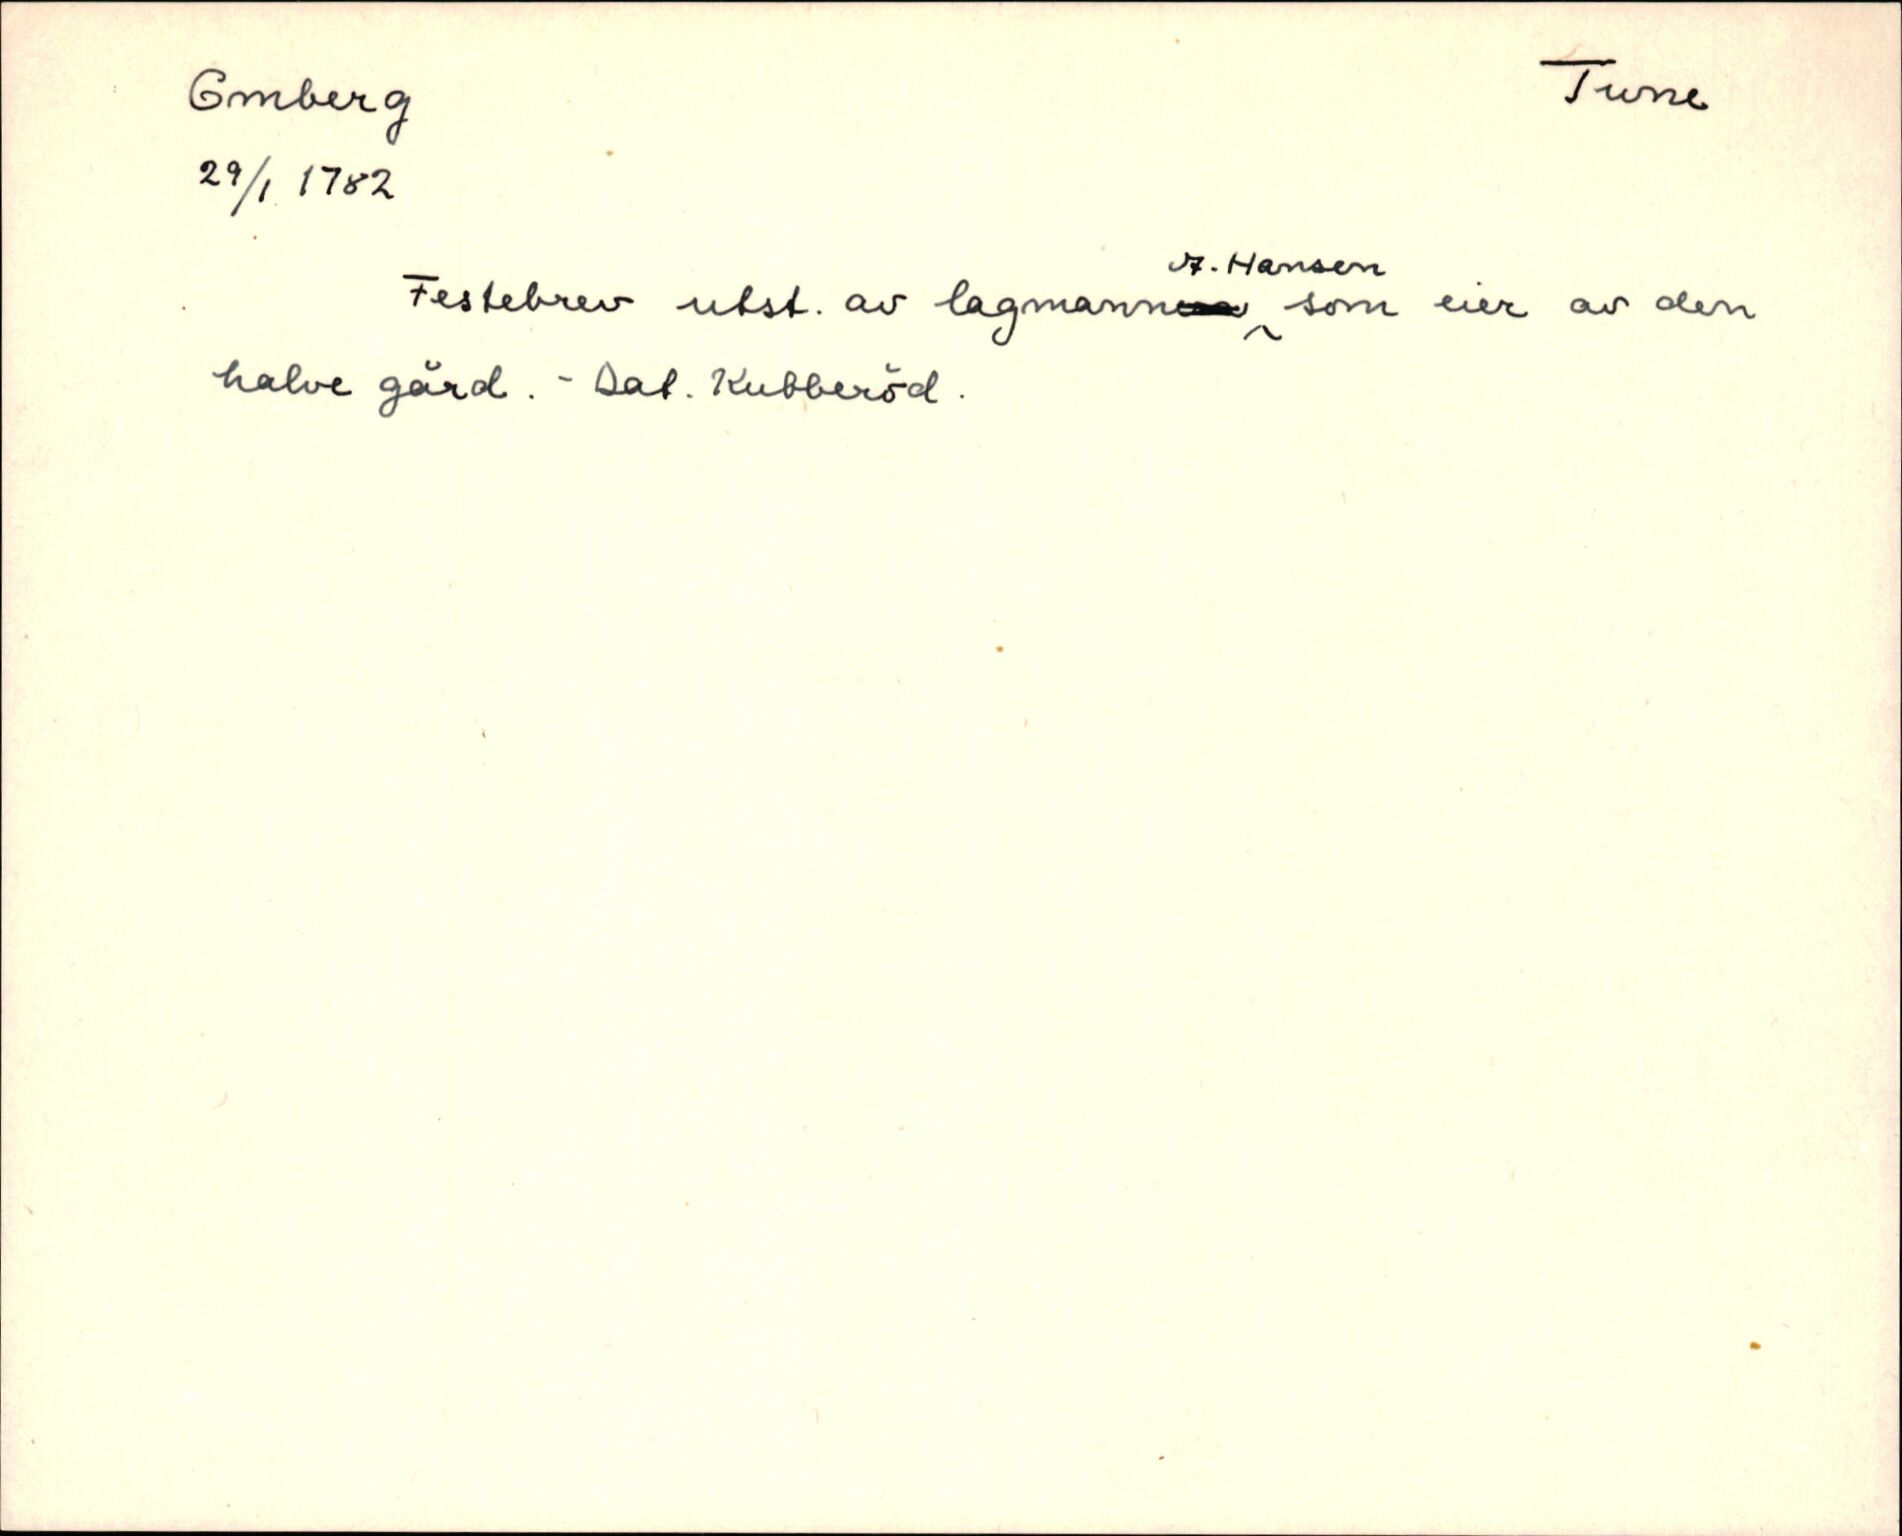 Emberg Tune
29/1 1782
Festebrev utst. av lagmann Hansen som eier av den
halve gård. - Dat. Kubberöd.